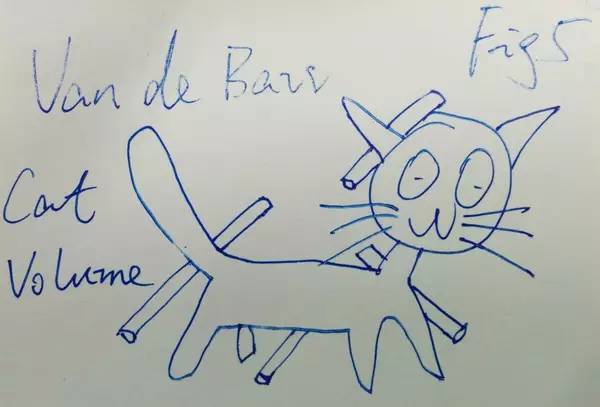 Van de Barr
Fig 5
Cat
Volume